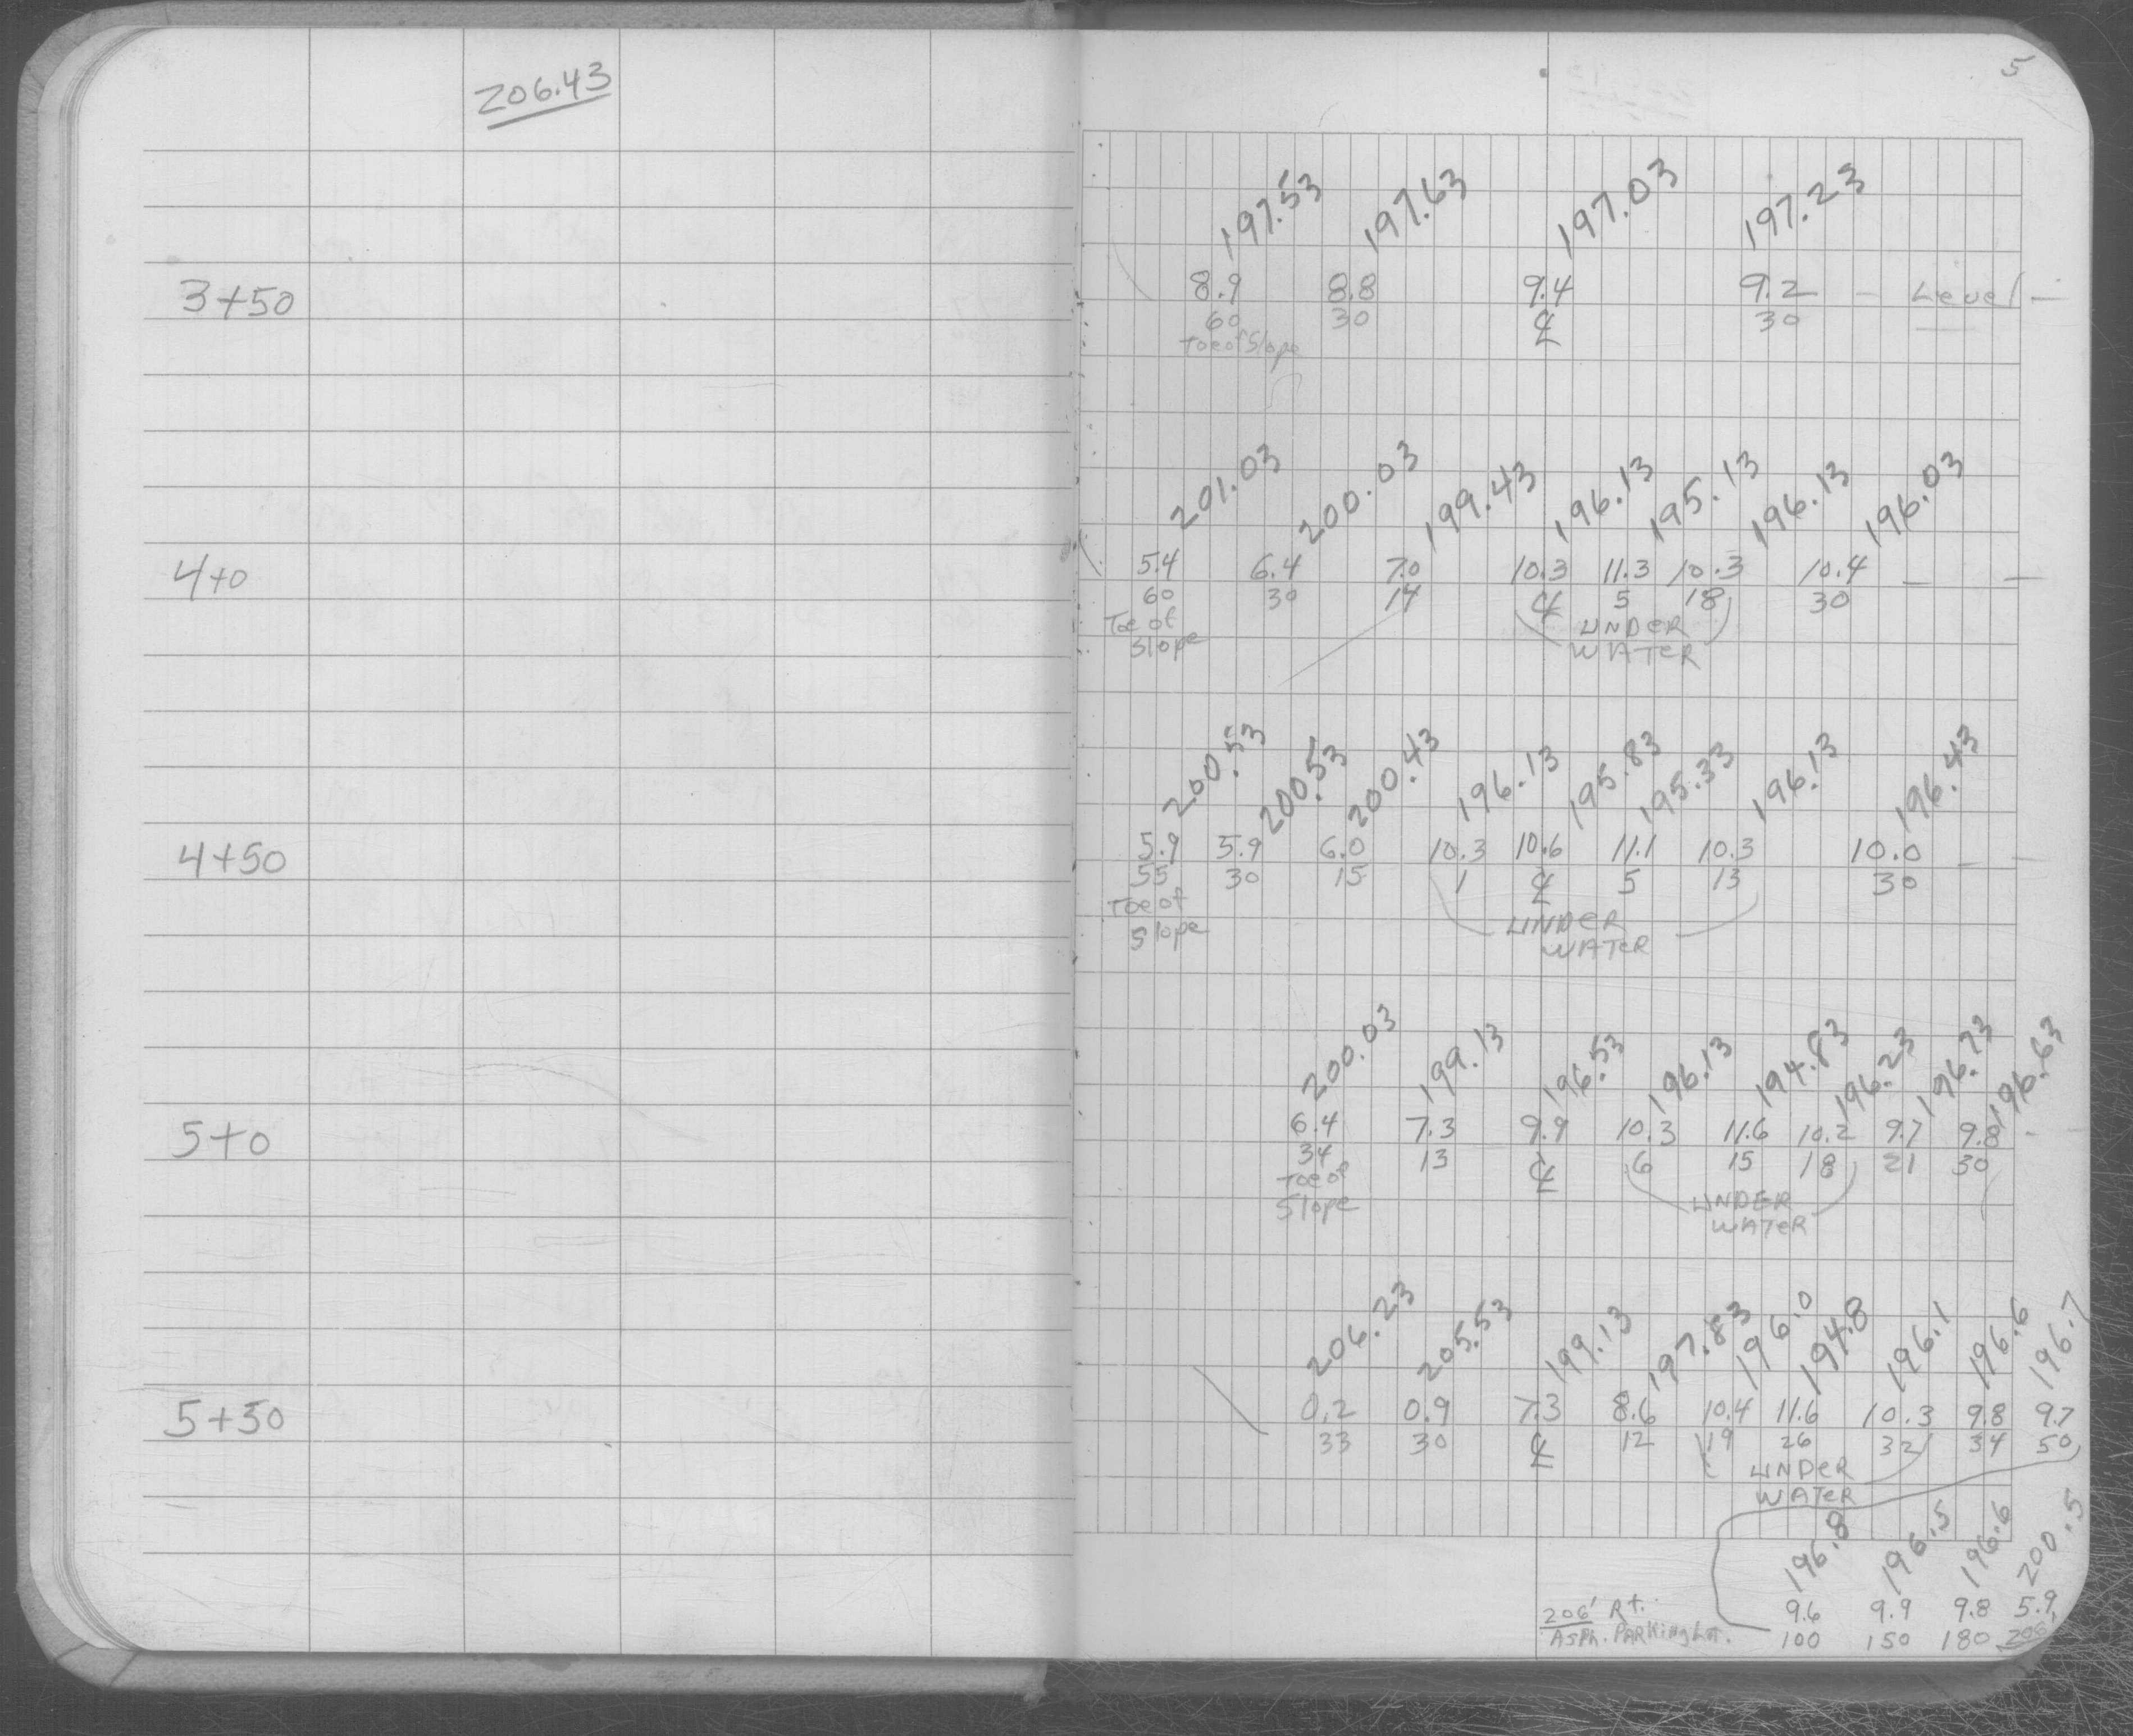 206.43
5
197.53 197.63 197.03 197.23
3+50 8.9 8.8 9.4 9.2 - Level -
60 30 ℄ 30
Toe of Slope
201.03 200.03 199.43 196.13 195.13 196.13 196.03
4+0 5.4 6.4 7.0 10.3 11.3 10.3 10.4 - -
60 30 14 ℄ 5 18 30
Toe of UNDER
Slope WATER
200.53 200.53 200.43 196.13 195.83 195.33 196.13 196.43
4+50 5.9 5.9 6.0 10.3 10.6 11.1 10.3 10.0 - -
55 30 15 1 ℄ 5 13 30
Toe of UNDER
Slope WATER
200.03 199.13 196.53 196.13 194.83 196.23 196.73 196.63
5+0 6.4 7.3 9.9 10.3 11.6 10.2 9.7 9.8 - -
34 13 ℄ 6 15 18 21 30
Toe of UNDER
Slope WATER
206.23 205.53 199.13 197.83 196.0 194.8 196.1 196.6 196.7
5+50 0.2 0.9 7.3 8.6 10.4 11.6 10.3 9.8 9.7
33 30 ℄ 12 19 26 32 34 50
UNDER
WATER
196.8 196.5 196.6 200.5
206' Rt. 9.6 9.9 9.8 5.9
Asph. Parking Lot. 100 150 180 206'